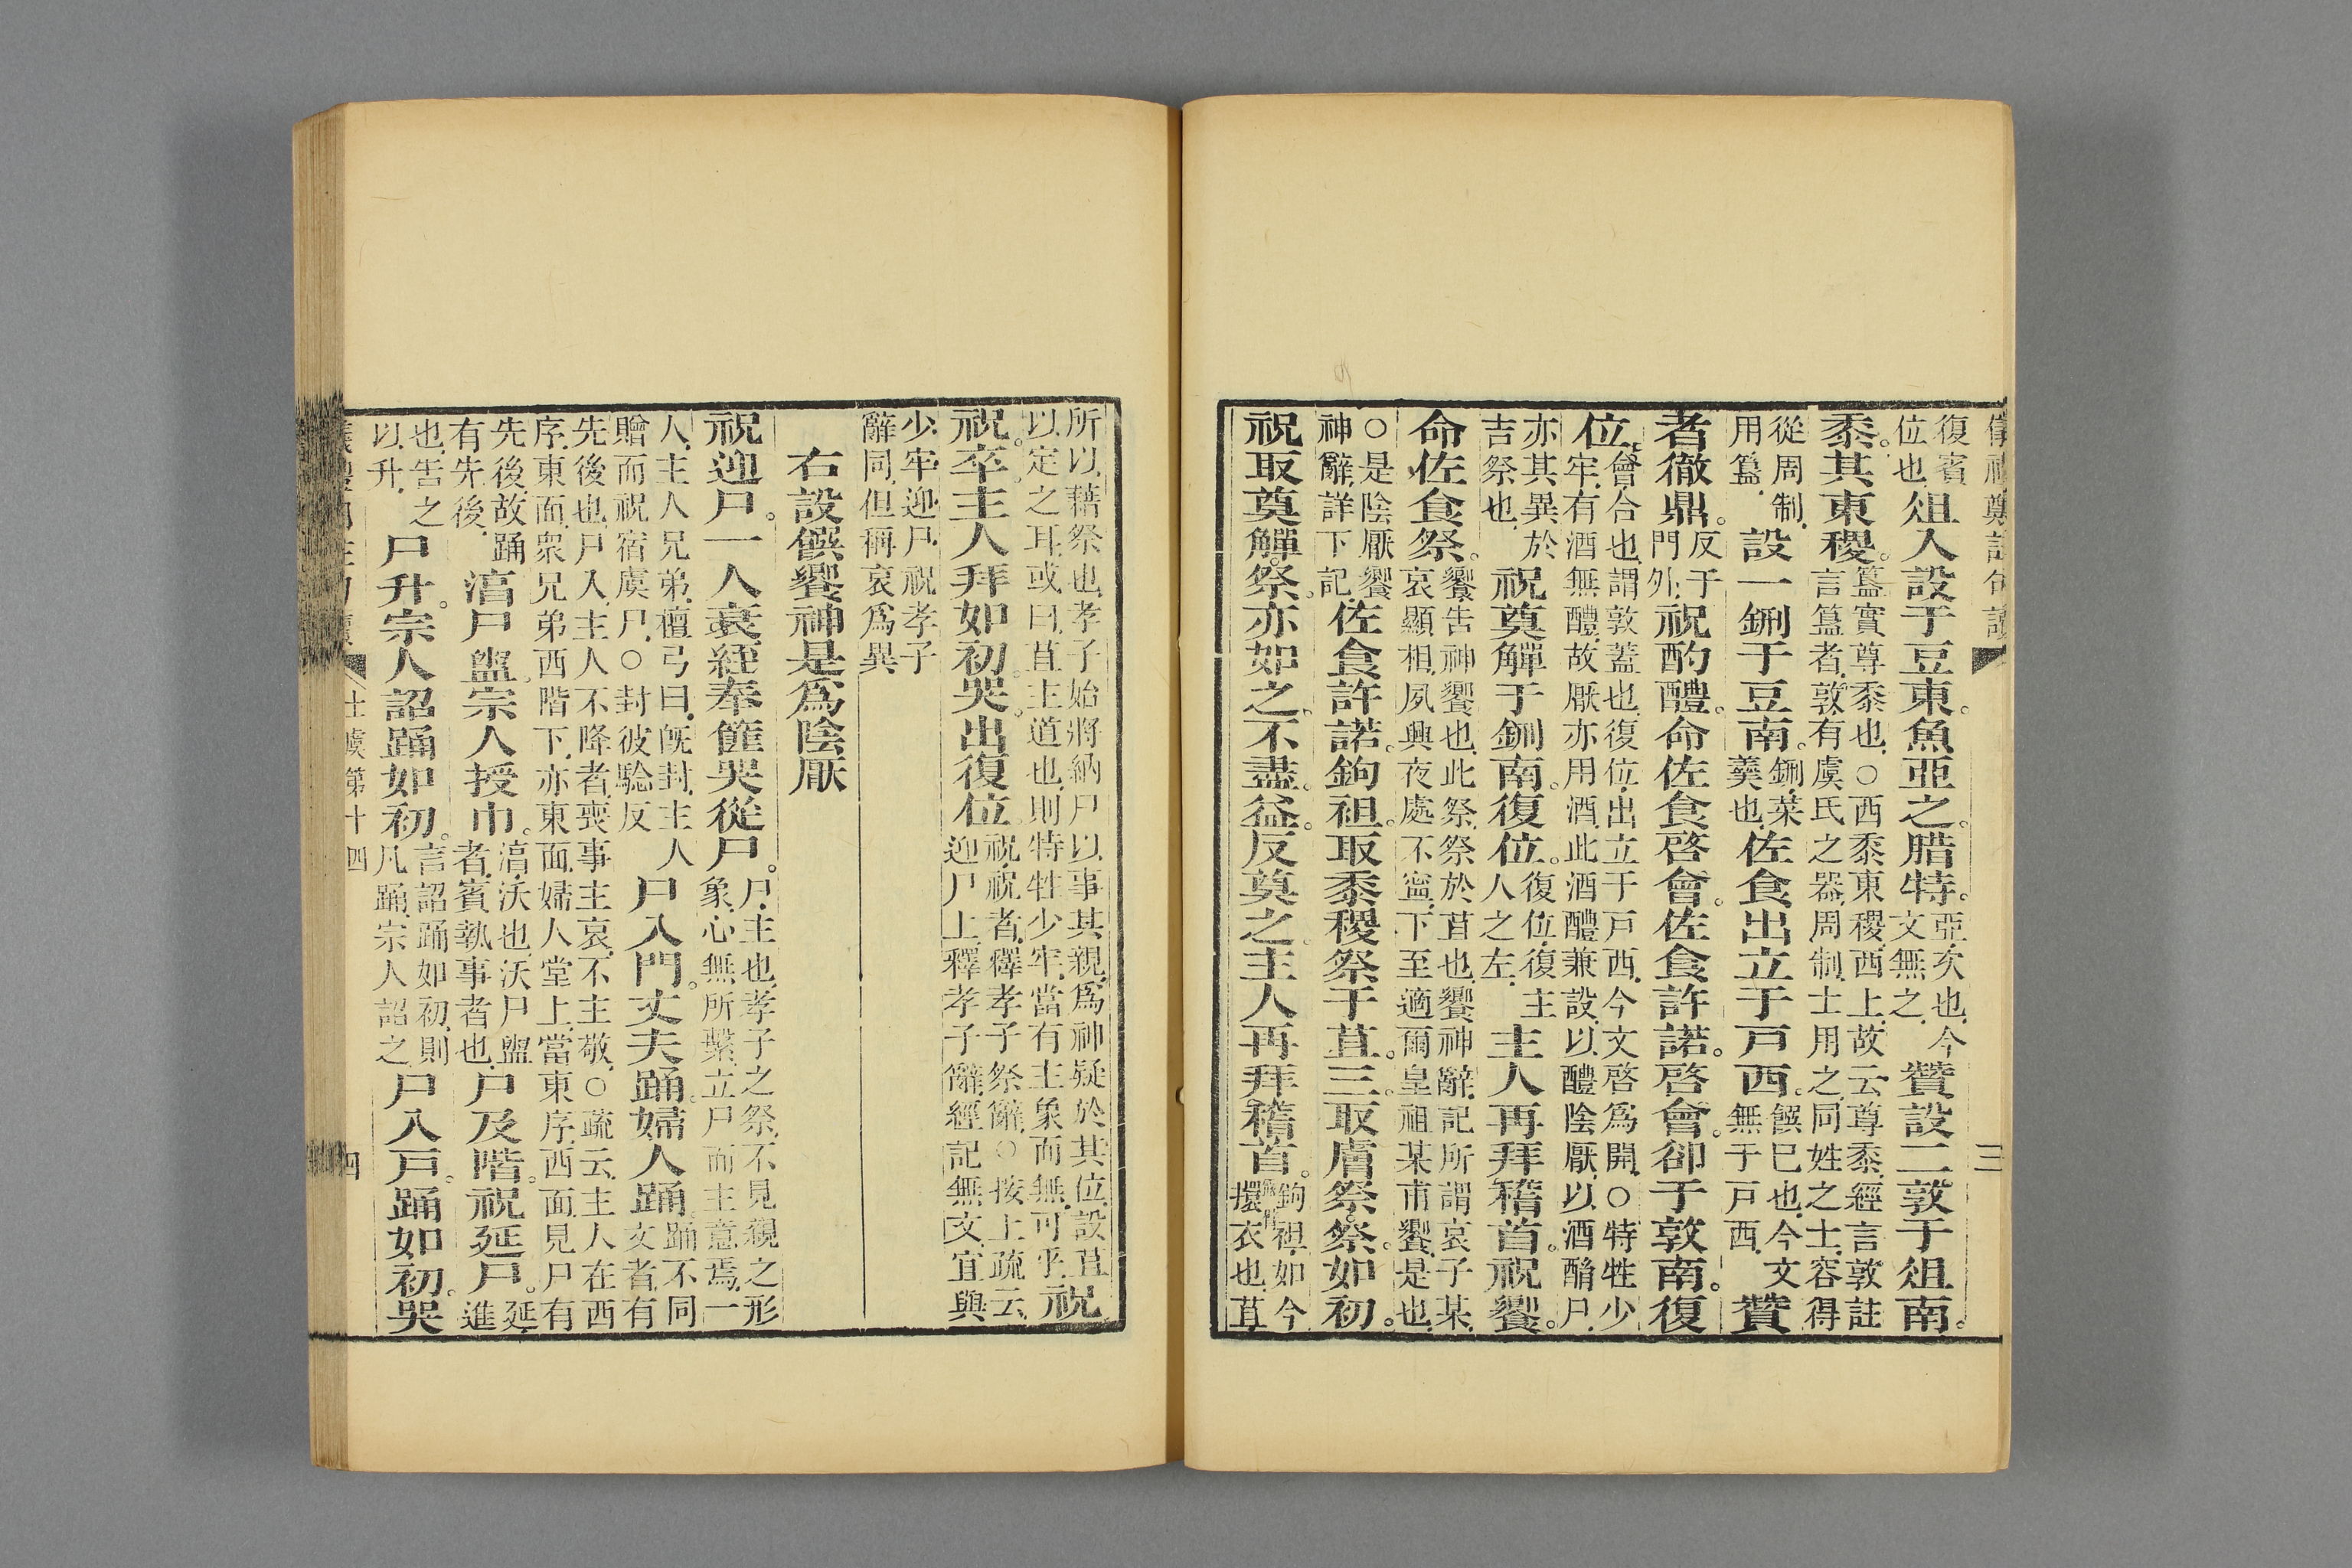 儀禮鄭註句讀 三
復賓位也俎入設于豆東。魚亞之。腊特。亞次也今文無之贊設二敦于俎南。
黍。其東稷。簋實尊黍也○西黍東稷西上故云尊黍經言敦註言簋者敦有虞氏之器周制士用之同姓之士容得
從周制用簋設一鉶于豆南。鉶菜羹也佐食出立于戶西。饌已也今文無于戶西贊
者徹鼎。反于門外祝酌醴。命佐食啓會。佐食許諾。啓會。卻于敦南。復
位。會合也謂敦蓋也復位出立于戶西今文啓爲開○特牲少牢有酒無醴故厭亦用酒此酒醴兼設以醴陰厭以酒酳尸
亦其異於吉祭也祝奠觶于鉶南。復位。復位復主人之左主人再拜稽首。祝饗。
命佐食祭。饗告神饗也此祭祭於苴也饗神辭記所謂哀子某哀顯相夙興夜處不寧下至適爾皇祖某甫饗是也
○是陰厭饗神辭詳下記佐食許諾。鉤袒。取黍稷祭于苴。三。取膚祭。祭如初。
祝取奠觶。祭。亦如之。不盡。益。反奠之。主人再拜稽首。鉤袒如今擐衣也苴
所以藉祭也孝子始將納尸以事其親爲神疑於其位設苴以定之耳或曰苴主道也則特牲少牢當有主象而無可乎祝
祝。卒。主人拜如初。哭。出復位。祝祝者釋孝子祭辭○按上疏云迎尸上釋孝子辭經記無文宜與
少牢迎尸祝孝子辭同但稱哀爲異
右設饌饗神是爲陰厭
祝迎尸。一人衰絰奉篚哭從尸。尸主也孝子之祭不見親之形象心無所繫立尸而主意焉一
人主人兄弟檀弓曰旣封主人贈而祝宿虞尸○封彼驗反尸入門。丈夫踊。婦人踊。踊不同文者有
先後也尸入主人不降者喪事主哀不主敬○疏云主人在西序東面衆兄弟西階下亦東面婦人堂上當東序西面見尸有
先後故踊有先後淯尸盥。宗人授巾。淯沃也沃尸盥者賓執事者也尸及階。祝延尸。延進
也告之以升尸升。宗人詔踊如初。言詔踊如初則凡踊宗人詔之尸入戶。踊如初。哭
士虞第十四 四